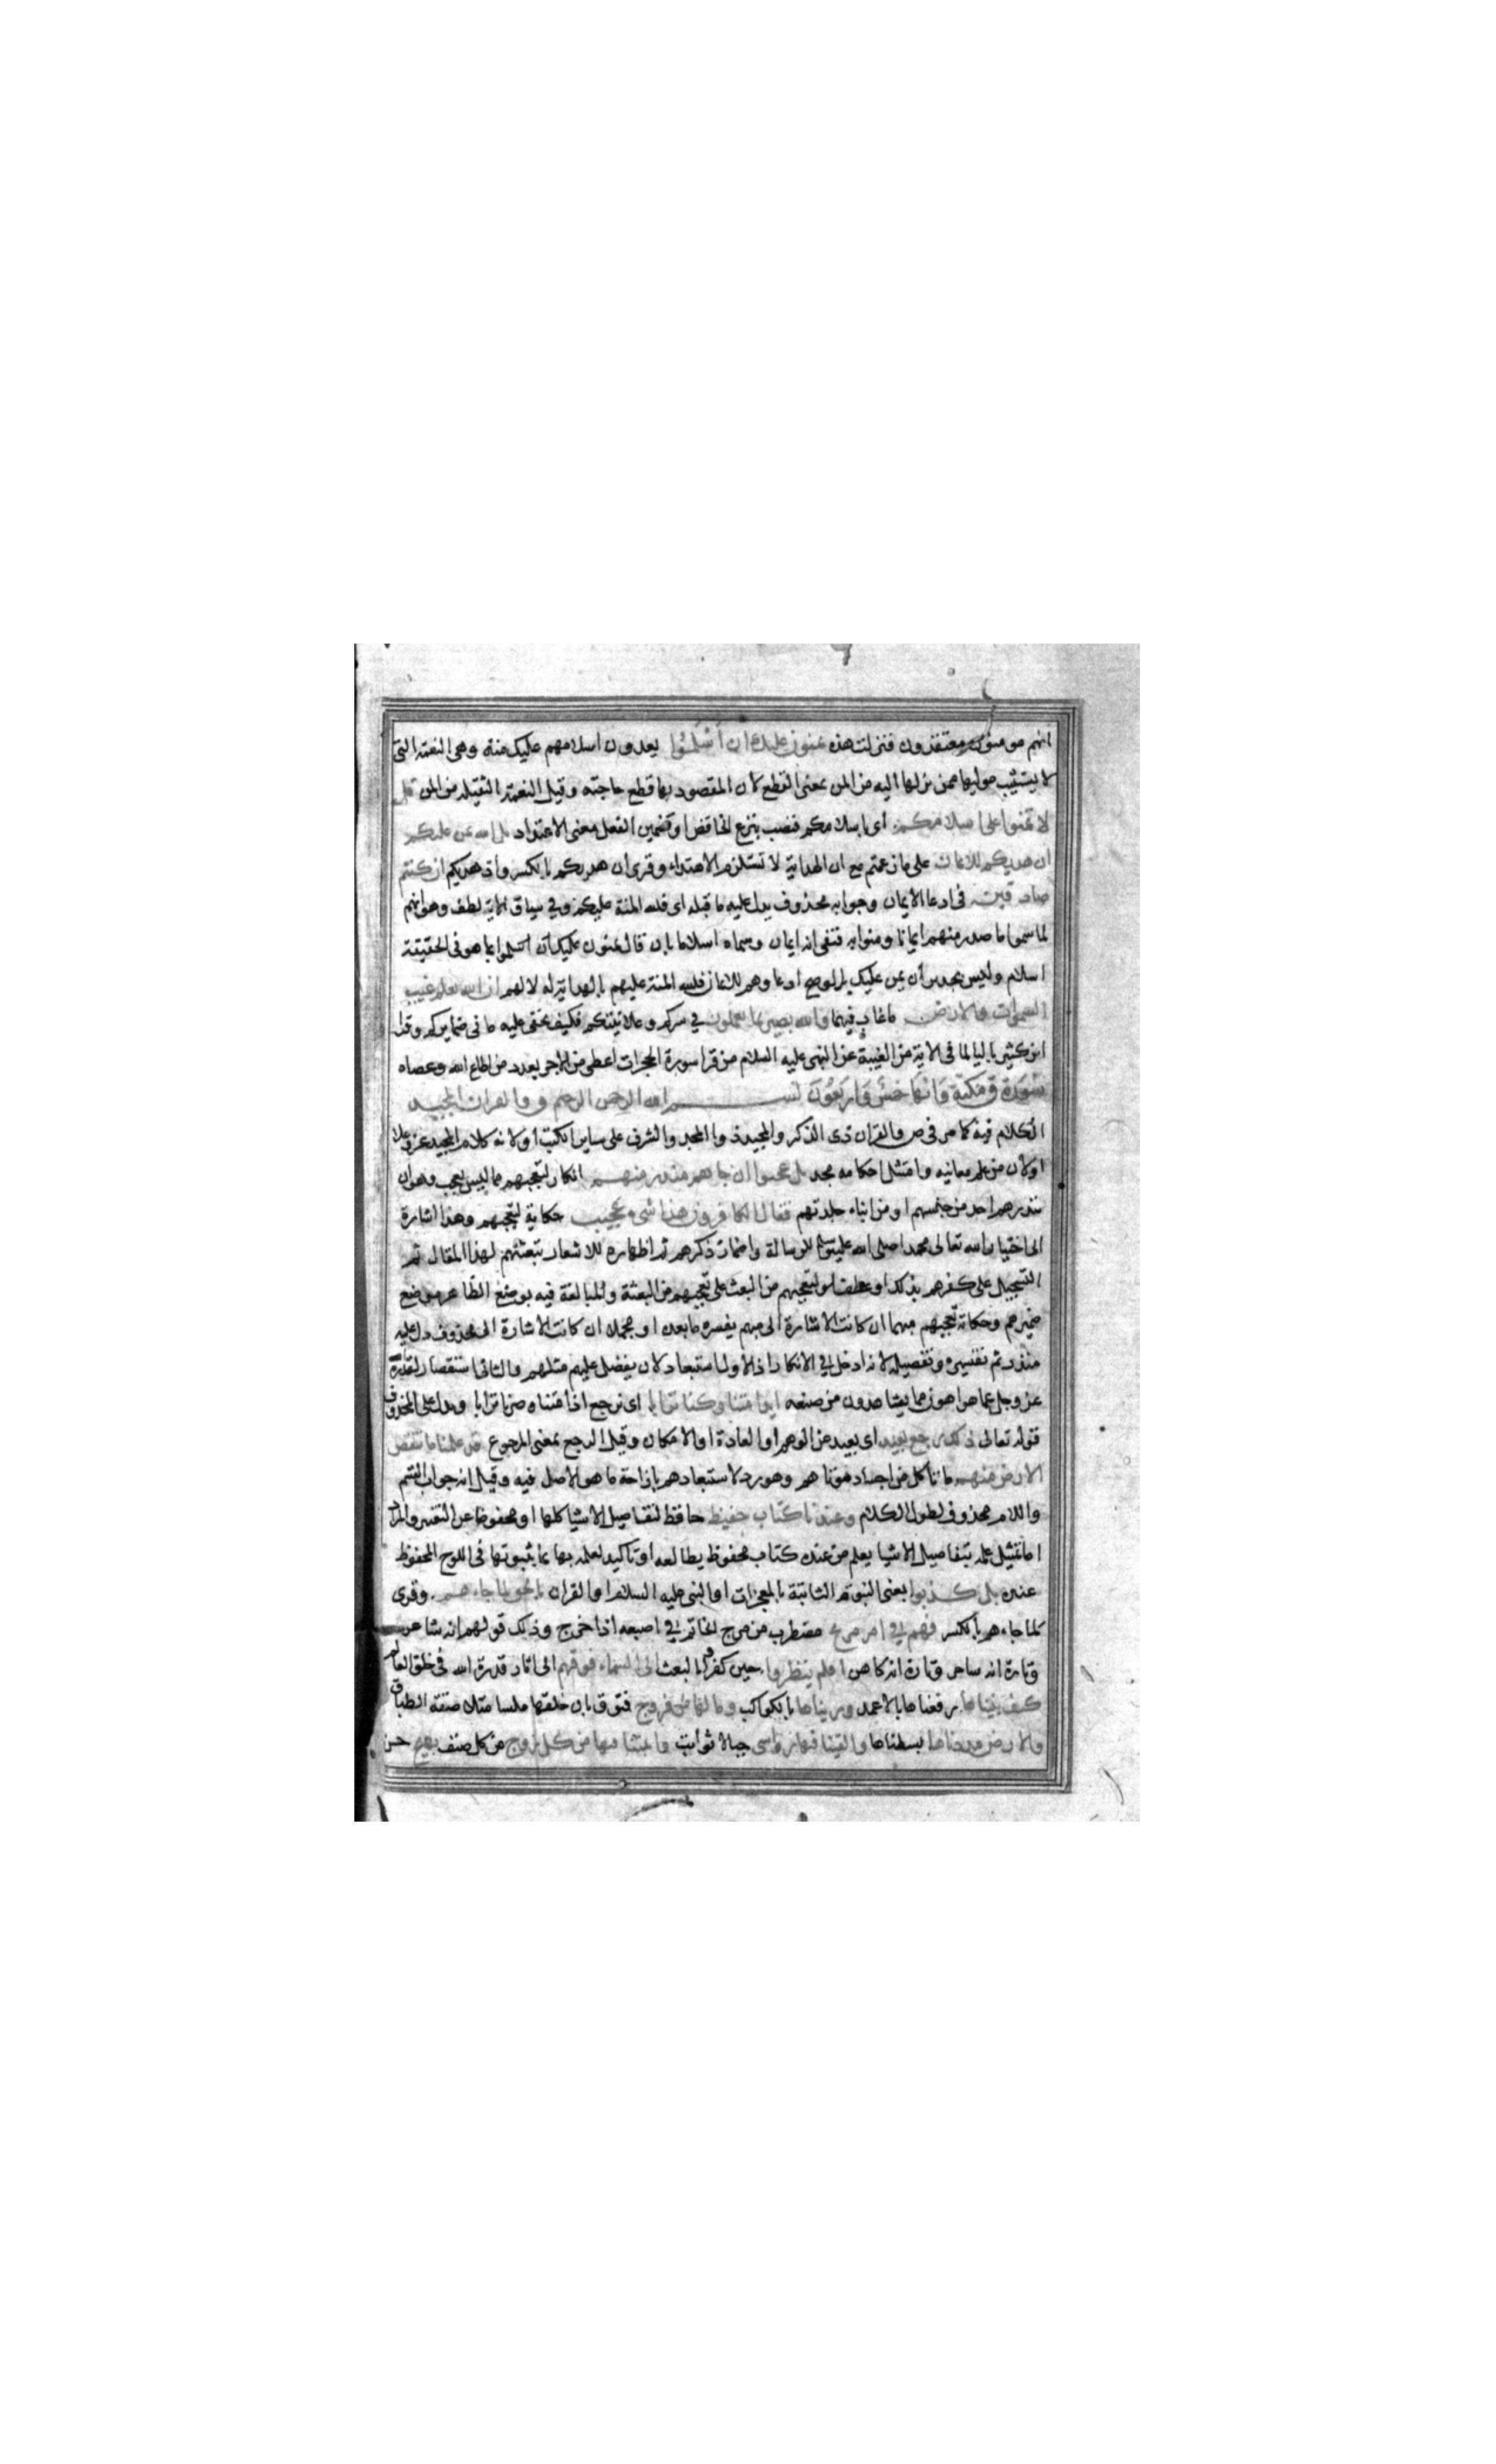 انهم مومنون معتقدون فنزلت هذه يمنون عليك ان اسلموا يعدون اسلامهم عليك منة وهى النعمة التى
لا يستثيب موليها ممن نزلها اليه من المن بمعنى القطع لان المقصود بها قطع حاجته وقيل النعمة الثقيلة من المن قل
لا تمنوا على اسلامكم اى باسلامكم فنصب بنزع الخافض او تضمين الفعل معنى الاعتداد بل الله يمن عليكم
ان هديكم للايمان على ما زعمتم مع ان الهداية لا تستلزم الاهتداء وقرى ان هديكم بالكسر واذ هديكم ان كنتم
صادقين فى ادعا الايمان وجوابه محذوف يدل عليه ما قبله اى فلله المنة عليكم وفي سياق الاية لطف وهو انهم
لما سموا ما صدر منهم ايمانا ومنوا به فنفى انه ايمان وسماه اسلاما بان قال يمنون عليك ان اسلموا بما هو فى الحقيقة
اسلام وليس بجدير أن يمن عليك بل لو صح ادعاوهم للايمان فلله المنة عليهم بالهداية له لا لهم ان الله يعلم غيب
السموات والارض ما غاب فيهما والله بصير بما تعملون في سركم وعلانيتكم فكيف يخفى عليه ما فى ضمايركم وقرا
ابن كثير باليا لما فى الاية من الغيبة عن النبى عليه السلام من قرا سورة الحجرات اعطى من الاجر بعدد من اطاع الله وعصاه
سورة ق مكية وانها خمس واربعون بسم الله الرحمن الرحيم ق والقران المجيد
الكلام فيه كما مر فى ص والقران ذى الذكر والمجيد ذو المجد والشرف على ساير الكتب او لانه كلام المجيد عز وعلا
او لان من علم معانيه وامتثل احكامه مجد بل عجبوا ان جاهم منذر منهم انكار لتعجبهم مما ليس بعجب وهو ان
ينذرهم احد من جنسهم او من ابناء جلدتهم فقال الكافرون هذا شىء عجيب حكاية لتعجبهم وهذا اشارة
الى اختيار الله تعالى محمدا صلى الله عليه وسلم للرسالة واضمار ذكرهم ثم اظهاره للاشعار بتعنتهم لهذا المقال ثم
التسجيل على كفرهم بذلك او عطف لتعجبهم من البعث على تعجبهم من البعثة والمبالغة فيه بوضع الظاهر موضع
ضميرهم وحكاية تعجبهم مبهما ان كانت الاشارة الى مبهم يفسره ما بعده او مجملا ان كانت الاشارة الى محذوف دل عليه
منذر ثم تفسيره وتفصيله لانه ادخل في الانكار اذ الاول استبعاد لان يفضل عليهم مثلهم والثانى استقصار لقدرة
عز وجل عما هو اهون مما يشاهدون من صنعه ايذا متنا وكنا ترابا اى نرجع اذا متنا وصرنا ترابا ويدل على المحذوف
قوله تعالى ذلك رجع بعيد اى بعيد عن الوهم او العادة او الامكان وقيل الرجع بمعنى المرجوع قد علمنا ما تنقص
الارض منهم ما تاكل من اجساد موتاهم وهو رد لاستبعادهم بازاحة ما هو الاصل فيه وقيل انه جواب القسم
واللام محذوف لطول الكلام وعندنا كتاب حفيظ حافظ لتفاصيل الاشيا كلها او محفوظ عن التغيير والمراد
اما تمثيل علمه بتفاصيل الاشيا بعلم من عنده كتاب محفوظ يطالعه او تاكيد لعلمه بها بما بثبوتها فى اللوح المحفوظ
عنده بل كذبوا يعنى النبوة الثابتة بالمعجزات او النبى عليه السلام او القران بالحق لما جاءهم وقرى
لما جاءهم بالكسر فهم في امر مريج مضطرب من مرج الخاتم في اصبعه اذا خرج وذلك قولهم انه شاعر
وتارة انه ساحر وتارة انه كاهن افلم ينظروا حين كفروا بالبعث الى السماء فوقهم الى اثار قدرة الله فى خلق العالم
كيف بنيناها رفعناها بالاعمد وزيناها بالكواكب وما لها من فروج فتوق بان خلقها ملسا متلاصقة الطباق
والارض مددناها بسطناها والقينا فيها رواسى جبالا ثوابت وانبتنا فيها من كل زوج من كل صنف بهيج حسن